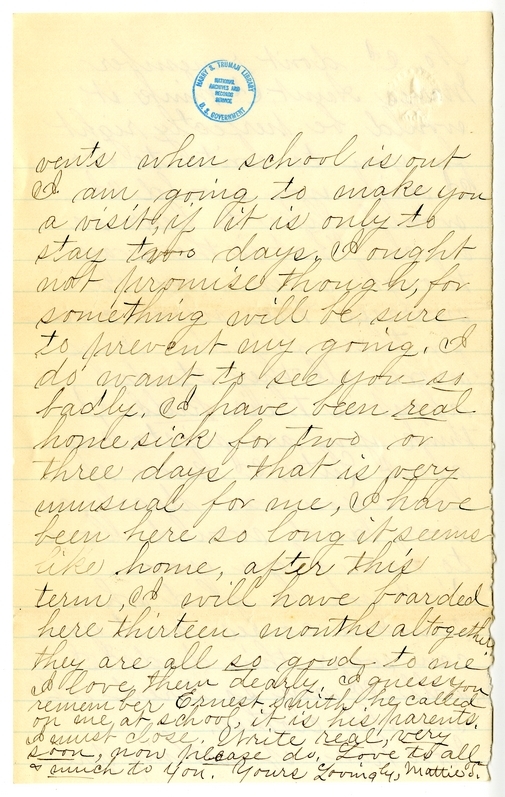 HARRY S. TRUMAN LIBRARY
NATIONAL
ARCHIVES AND
RECORDS
SERVICE
U.S. GOVERNMENT
vents when school is out
I am going to make you
a visit, if it is only to
stay two days. I ought
not promise though, for
something will be sure
to prevent my going. I
do want to see you so
badly. I have been real
home sick for two or
three days that is very
unusual for me, I have
been here so long it seems
like home, after this
term, I will have boarded
here thirteen months altogether
they are all so good to me
I love them dearly. I guess you
remember Ernest Smith he called
on me, at school, it is his parents.
I must close. Write real, very
soon, now please do. Love to all
& much to you. Yours Lovingly, Mattie S.